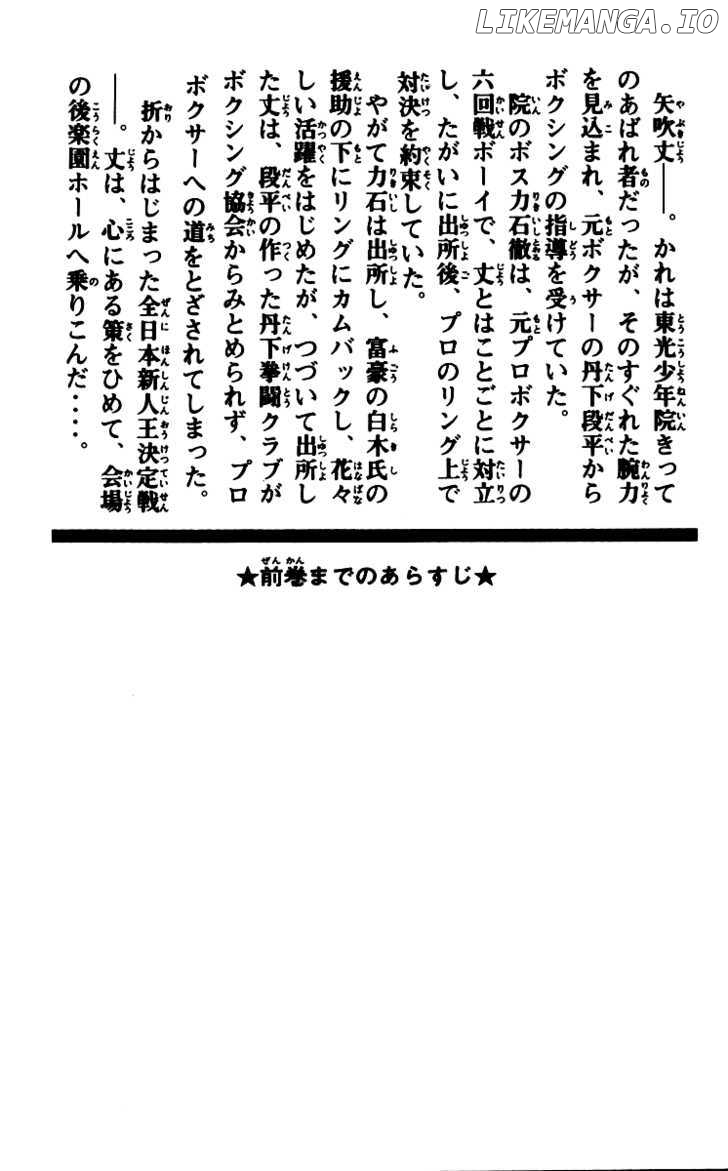 LIKEMANGA.IO
矢吹丈――。かれは東光少年院きって
のあばれ者だったが、そのすぐれた腕力
を見込まれ、元ボクサーの丹下段平から
ボクシングの指導を受けていた。
院のボス力石徹は、元プロボクサーの
六回戦ボーイで、丈とはことごとに対立
し、たがいに出所後、プロのリング上で
対決を約束していた。
やがて力石は出所し、富豪の白木氏の
援助の下にリングにカムバックし、花々
しい活躍をはじめたが、つづいて出所し
た丈は、段平の作った丹下拳闘クラブが
ボクシング協会からみとめられず、プロ
ボクサーへの道をとざされてしまった。
折からはじまった全日本新人王決定戦
――。丈は、心にある策をひめて、会場
の後楽園ホールへ乗りこんだ・・・・。
★前巻までのあらすじ★